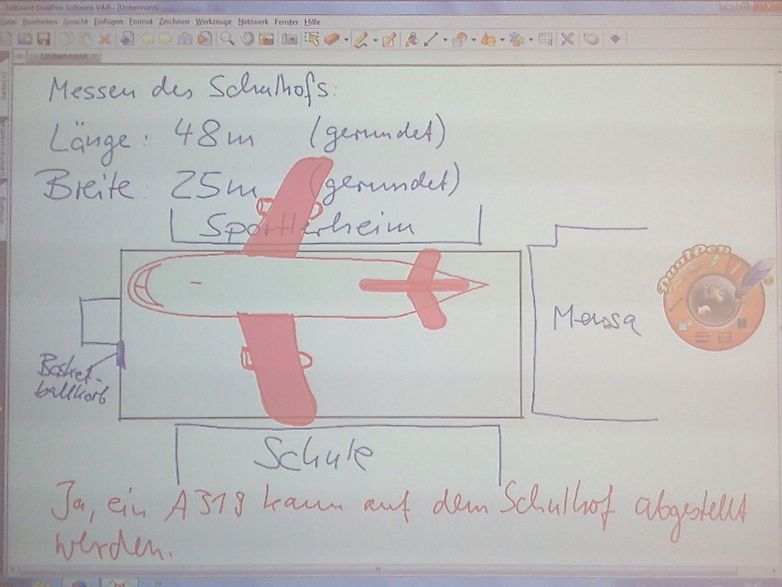 Datei Bearbeiten Ansicht Einfügen Format Zeichnen Werkzeuge Netzwerk Fenster Hilfe
Unbenannt
Messen des Schulhofs:
Länge: 48m (gerundet)
Breite: 25m (gerundet)
Sportlerheim
DualPen
Mensa
Basket-
ballkorb
Schule
Ja, ein A319 kann auf dem Schulhof abgestellt
werden.